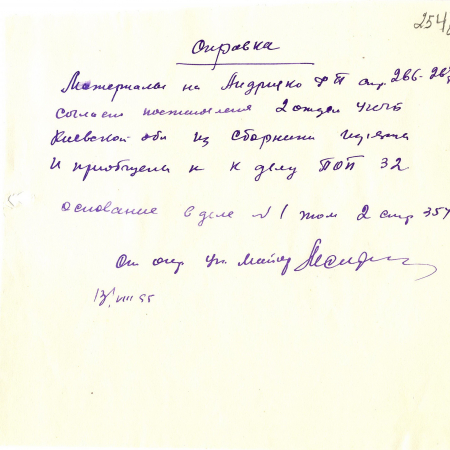 254
Справка
Материалы на Андрицко ФП стр 286-287
согласно постановления 2 отдел УКГБ
Киевской обл из сборника изъяты
И приобщены к к делу ПОП 32
основание в деле №1 том 2 стр 357
Ст опер уп. Майор
13/VIII 55